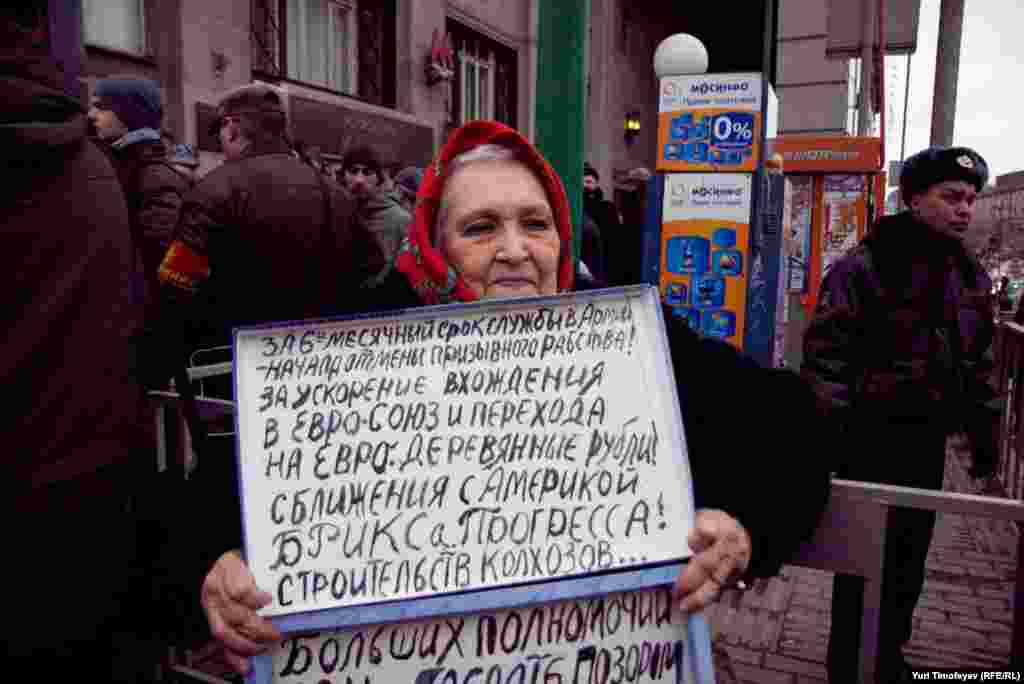 МОСИНФО
Прием платежей
0%
МОСИНФО
ЗА 6=МЕСЯЧНЫЙ СРОК СЛУЖБЫ В АРМИИ
-НАЧАЛО ОТМЕНЫ ПРИЗЫВНОГО РАБСТВА!
ЗА УСКОРЕНИЕ ВХОЖДЕНИЯ
В ЕВРО-СОЮЗ И ПЕРЕХОДА
НА ЕВРО-ДЕРЕВЯННЫЕ РУБЛИ!
СБЛИЖЕНИЯ С АМЕРИКОЙ
БРИКСа ПРОГРЕССА!
СТРОИТЕЛЬСТВ КОЛХОЗОВ...
БОЛЬШИХ ПОЛНОМОЧИЙ
ПОЗОРОМ
Yuri Timofeyev (RFE/RL)